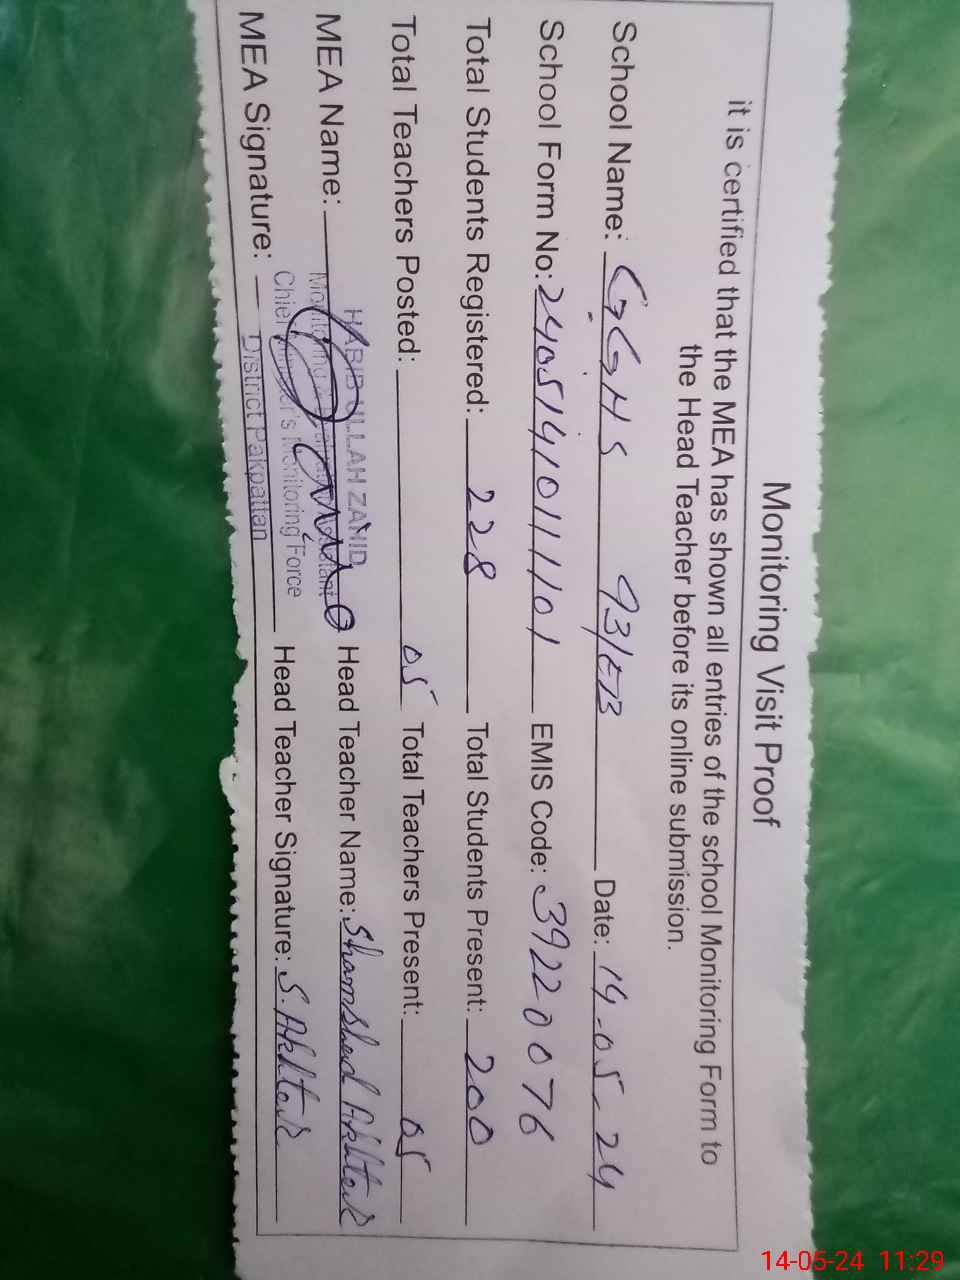 Monitoring Visit Proof
it is certified that the MEA has shown all entries of the school Monitoring Form to
the Head Teacher before its online submission.
School Name: GGHS 93/EB Date: 14-05-24
School Form No: 2405141011101 EMIS Code: 39220076
Total Students Registered: 228 Total Students Present: 200
Total Teachers Posted: 05 Total Teachers Present: 05
MEA Name: HABIB ULLAH ZAHID Head Teacher Name: Shamshad Akhtar
Monitoring & Assistant
Chief Minister's Monitoring Force
MEA Signature: District Pakpattan Head Teacher Signature: S. Akhtar
14-05-24 11:29